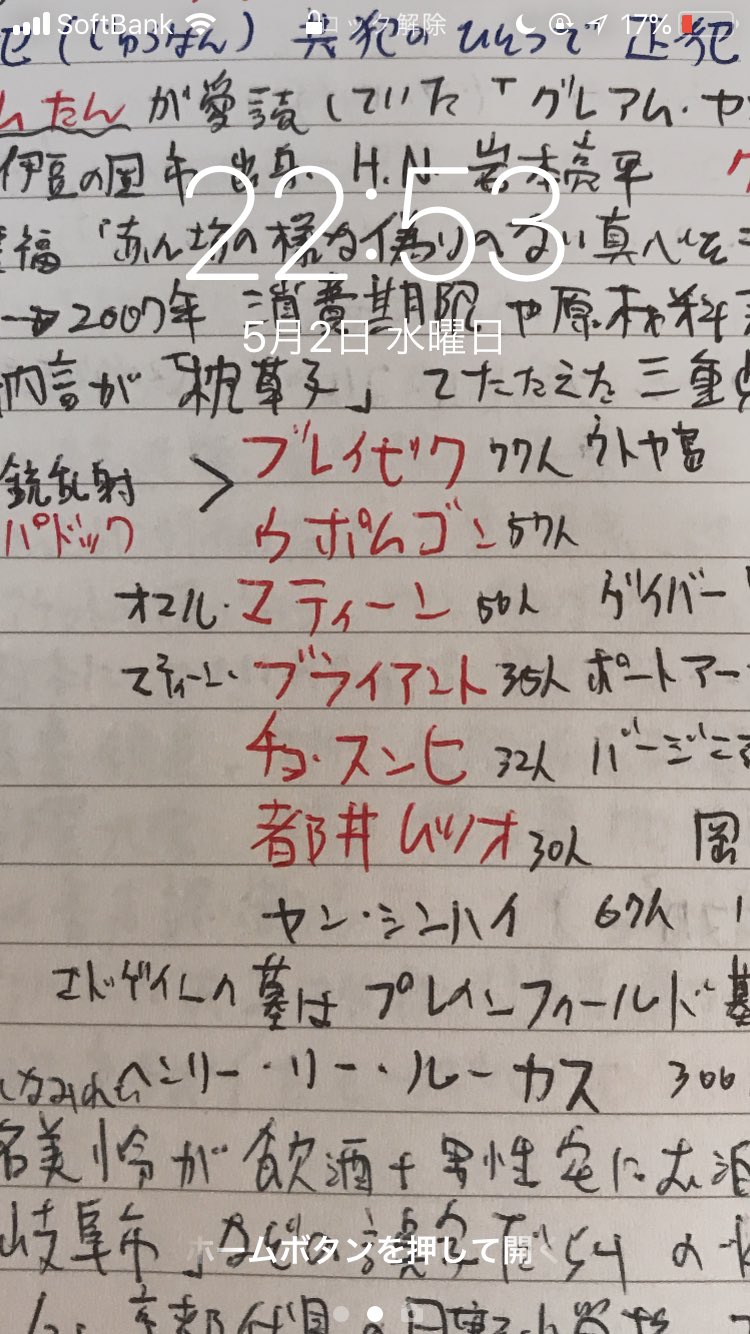 SoftBank 17%
ロック解除
共犯のひとつで 正犯
たんが愛読していた「グレアム・ヤ
伊豆の国市出身 H.N. 岩本亮平
22:53
福「赤ん坊の様な偽りのない真心を
→2007年 消費期限や原材料
5月2日 水曜日
が「枕草子」でたたえた三重
銃乱射 > ブレイビク 77人 ウトヤ島
パドック ウポムゴン 57人
オマル・マティーン 50人 ゲイバー
マティーン・ブライアント 35人 ポートアー
チョ・スンヒ 32人 バージニア
都井ムツオ 30人 岡
ヤン・シンハイ 67人
エドゲインの墓はプレインフィールド墓
ヘンリー・リー・ルーカス 300
美怜が飲酒+男性宅にお泊
岐阜市」などの
ホームボタンを押して開く